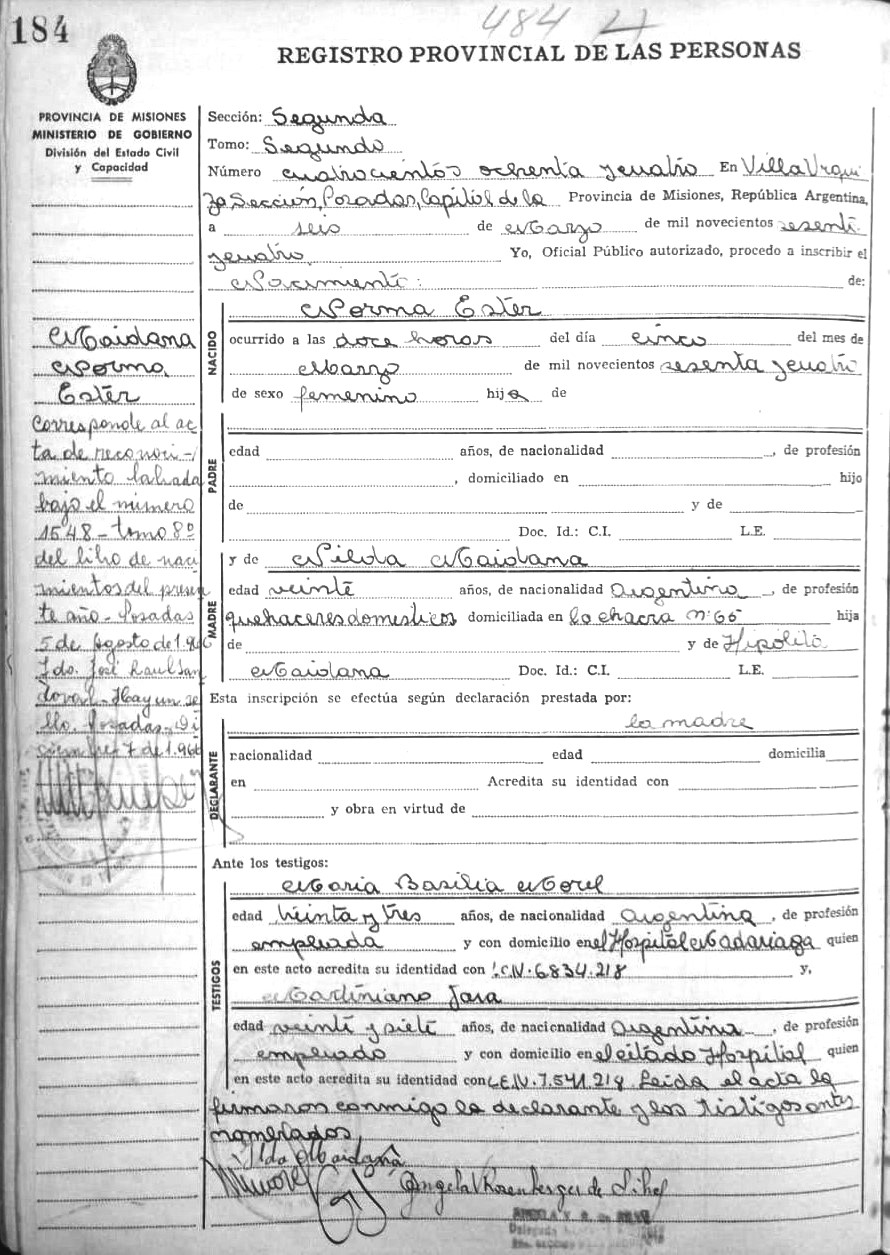 184
484
REGISTRO PROVINCIAL DE LAS PERSONAS
PROVINCIA DE MISIONES
MINISTERIO DE GOBIERNO
División del Estado Civil
y Capacidad
Sección: Segunda
Tomo: Segundo
Número cuatrocientos ochenta y cuatro En Villa Urqui
za Sección, Posadas, Capital de la Provincia de Misiones, República Argentina,
a seis de Marzo de mil novecientos sesenta
y cuatro Yo, Oficial Público autorizado, procedo a inscribir el
Nacimiento: de:
NACIDO
Norma Ester
ocurrido a las doce horas del día cinco del mes de
Marzo de mil novecientos sesenta y cuatro
de sexo femenino hija de
Maidana
Norma
Ester
Corresponde al ac
ta de reconoci-
miento labrada
bajo el número
1548 - tomo 8º
del libro de naci
mientos del presen
te año - Posadas
5 de Agosto de 1.966
Fdo. José Raul San
doval - Hay un se
llo. Posadas, Di
ciembre 7 de 1.966
PADRE
edad años, de nacionalidad , de profesión
, domiciliado en hijo
de y de
Doc. Id.: C.I. L.E.
MADRE
y de Nilda Maidana
edad veinte años, de nacionalidad Argentina , de profesión
quehaceres domesticos domiciliada en la chacra nº 66 hija
de y de Hipólita
Maidana Doc. Id.: C.I. L.E.
Esta inscripción se efectúa según declaración prestada por:
la madre
DECLARANTE
nacionalidad edad domicilia
en Acredita su identidad con
y obra en virtud de
Ante los testigos:
TESTIGOS
Maria Basilia Morel
edad treinta y tres años, de nacionalidad Argentina , de profesión
empleada y con domicilio en el Hospital Madariaga quien
en este acto acredita su identidad con L.C.N. 6834.218 y,
Martiniano Jara
edad veinte y siete años, de nacionalidad Argentina , de profesión
empleado y con domicilio en el citado Hospital quien
en este acto acredita su identidad con L.E.N. 7.541.218 Leida el acta la
firmaron conmigo la declarante y los testigos antes
nombrados
Ilda Maidana
Angela Rosenberger de